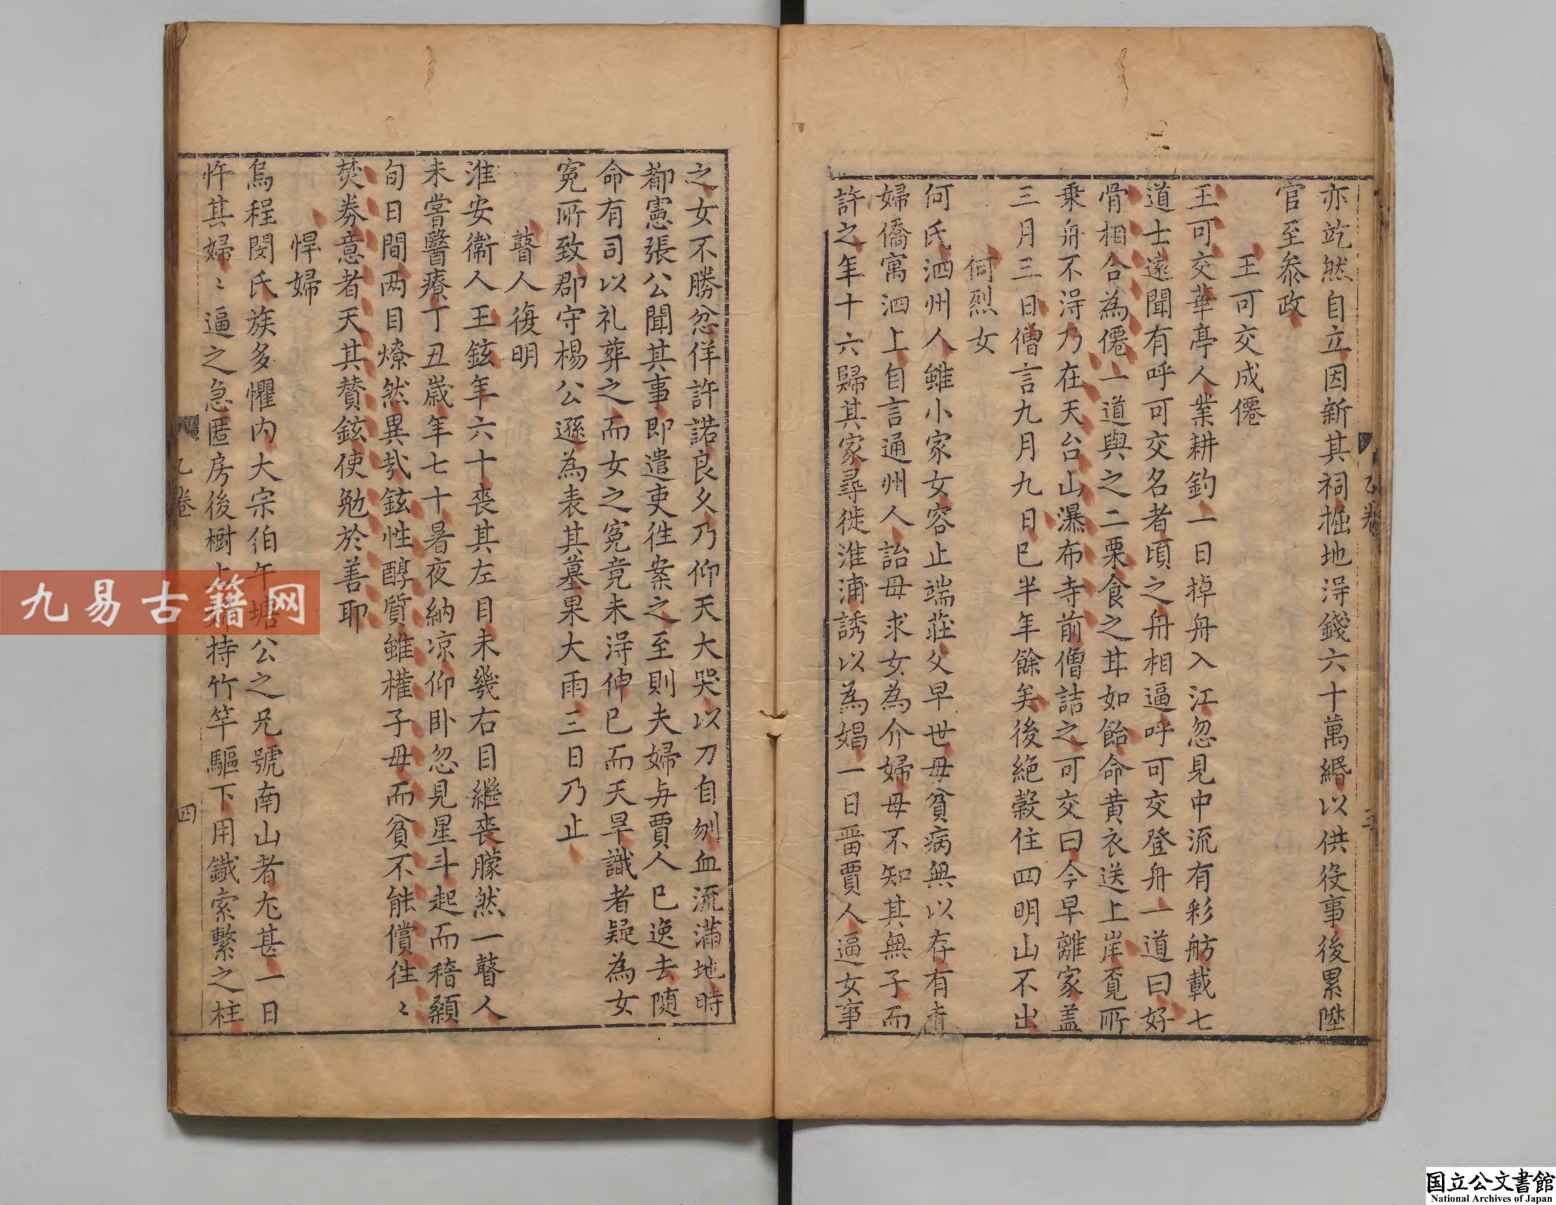 亦䇄然自立因新其祠掘地淂錢六十萬緡以供役事後累陞
官至叅政
王可交成僊
王可交華亭人業耕釣一日棹舟入江忽見中流有彩舫載七
道士遠聞有呼可交名者頃之舟相逼呼可交登舟一道曰好
骨相合為僊一道與之二栗食之甘如飴命黄衣送上岸覔所
乗舟不淂乃在天台山瀑布寺前僧詰之可交曰今早離家盖
三月三日僧言九月九日巳半年餘矣後絶糓住四明山不出
何烈女
何氏泗州人雖小家女容止端莊父早世母貧病無以存有青
婦僑寓泗上自言通州人詒母求女為介婦母不知其無子而
許之年十六歸其家尋徙淮浦誘以為娼一日畱賈人逼女事
之女不勝忿佯許諾良久乃仰天大哭以刀自刎血流滿地時
都憲張公聞其事即遣吏徃案之至則夫婦与賈人巳逸去隨
命有司以礼葬之而女之寃竟未淂伸巳而天旱識者疑為女
寃所致郡守楊公遜為表其墓果大雨三日乃止
瞽人復明
淮安衛人王鉉年六十喪其左目未幾右目繼喪朦然一瞽人
未嘗醫療丁丑歲年七十暑夜納凉仰卧忽見星斗起而稽顙
旬日間两目燎然異㢤鉉性醇質雖權子母而貧不能償徃〻
焚券意者天其賛鉉使勉於善耶
悍婦
烏程閔氏族多懼内大宗伯午塘公之兄號南山者尢甚一日
忤其婦〻逼之急匿房後樹上持竹竿驅下用鐵索繫之柱
九卷
四
九易古籍网
国立公文書館
National Archives of Japan